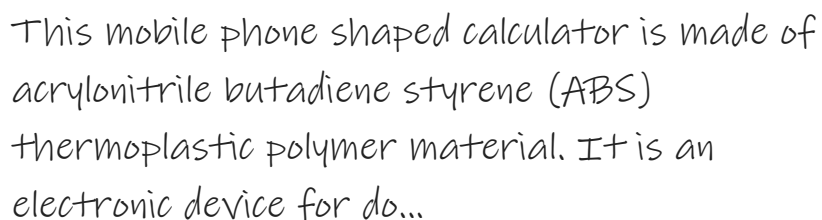 This mobile phone shaped calculator is made of
acrylonitrile butadiene styrene (ABS)
thermoplastic polymer material. It is an
electronic device for do...